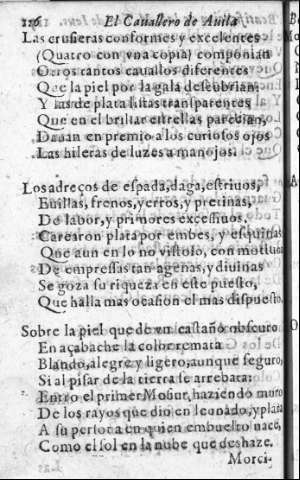 116 El Cauallero de Auila
Las crusieras conformes y excelentes
(Quatro con vna copia) componian
Otros tantos cauallos diferentes
Que la piel por la gala descubrian,
Y las de plata listas transparentes
Que en el brillar estrellas parecian,
Dauan en premio a los curiosos ojos
Las hileras de luzes a manojos.
Los adreços de espada, daga, estriuos,
Euillas, frenos, yerros, y pretinas,
De labor, y primores excessiuos.
Carearon plata por embes, y esquinas
Que aun en lo no vistolo, con
De empressas tan agenas, y diuinas
Se goza su riqueza en este puesto,
Que halla mas ocasion el mas dispuesto
Sobre la piel que de vn castaño obscuro
En açabache la color remata
Blando, alegre y ligero, aunque seguro,
Si al pisar de la tierra se arrebata:
Entro el primer Moñur, haziendo muro
De los rayos que dio en leonado, y plata
A su persona en quien embuelto nace,
Como el sol en la nube que deshaze.
Morci-